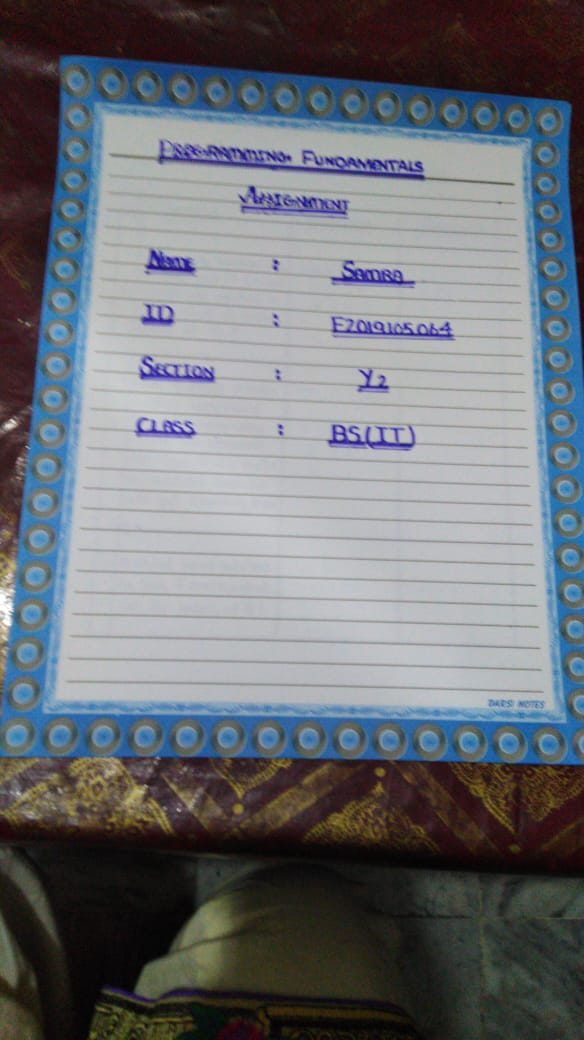 PROGRAMMING FUNDAMENTALS
ASSIGNMENT
NAME : SAMRA
ID : F2019105064
SECTION : Y2
CLASS : BS(IT)
DARSI NOTES